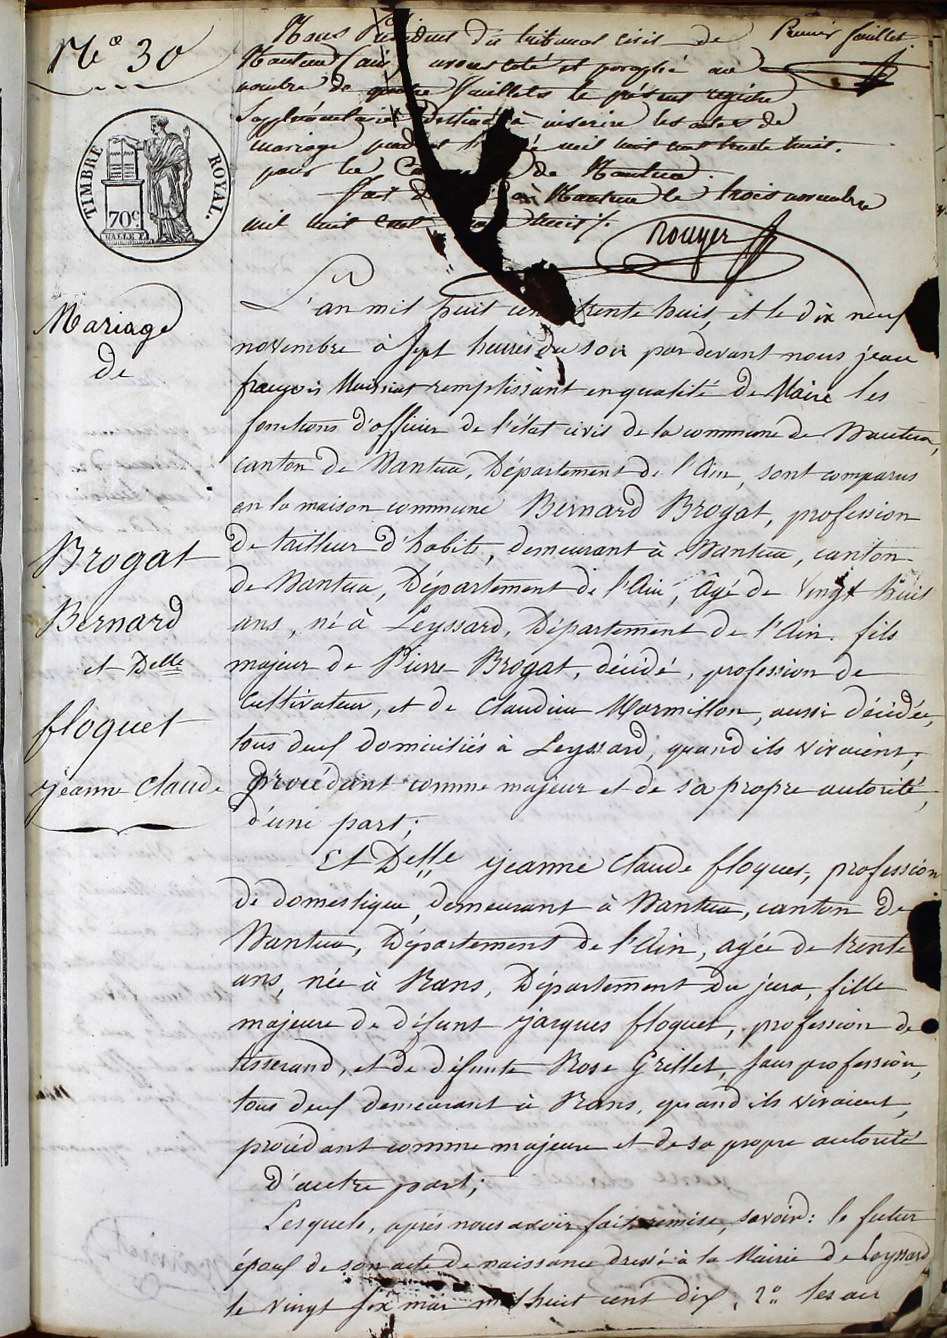 N° 30
TIMBRE ROYAL.
70c
Nous Président du tribunal civil de
Premier feuillet
Nantua, avons coté et paraphé au
nombre de feuillets le présent registre
Supplémentaire destiné à inscrire les actes de
mariage mil huit cent trente huit.
pour la de Nantua.
fait Nantua le trois novembre
mil huit cent huit /.
Rouyer
Mariage
de
Brogat
Bernard
et Delle
floquet
jeanne Claude
L'an mil huit cent trente huit, et le dix neuf
novembre à sept heures du soir par devant nous jean
françois remplissant en qualité de Maire les
fonctions d'officier de l'état civil de la commune de Nantua,
canton de Nantua, Département de l'Ain, sont comparus
en la maison commune Bernard Brogat, profession
de tailleur d'habits, demeurant à Nantua, canton
de Nantua, Département de l'Ain, âgé de vingt huit
ans, né à Leyssard, Département de l'Ain. fils
majeur de Pierre Brogat, décédé, profession de
Cultivateur, et de Claudine Marmillon, aussi décédée,
tous deux domiciliés à Leyssard, quand ils vivaient,
procédant comme majeur et de sa propre autorité,
d'une part;
Et Delle jeanne Claude floquet, profession
de domestique, demeurant à Nantua, canton de
Nantua, Département de l'Ain, agée de trente
ans, née à Rans, Département du jura, fille
majeure de défunt jacques floquet, profession de
tisserand, et de défunte Rose Grillet, sans profession,
tous deux demeurant à Rans, quand ils vivaient,
procédant comme majeure et de sa propre autorité
d'autre part;
Lesquels, après nous avoir fait remise, savoir: le futur
époux de son acte de naissance dressé à la Mairie de Leyssard
le vingt six mai mil huit cent dix, 2° les